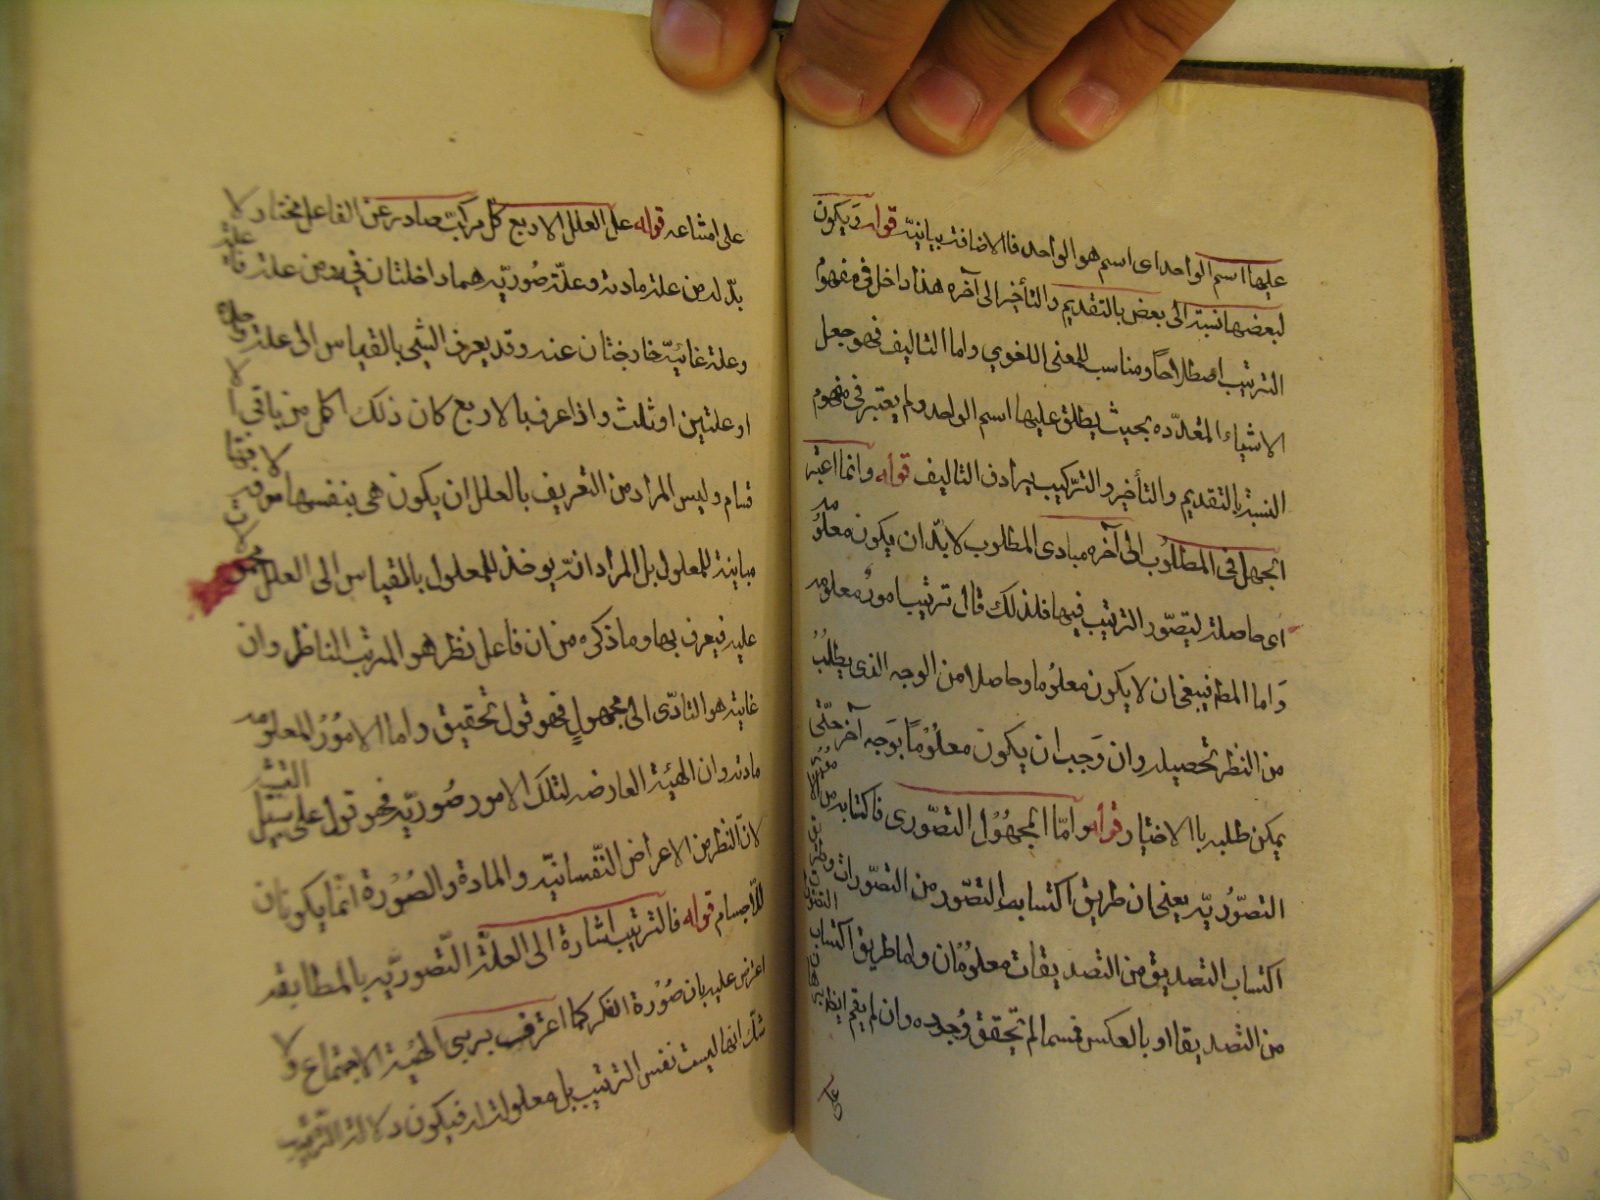 عليها اسم الواحد اى اسم هو الواحد فالاضافة بيانيّة قوله ويكون
لبعضها نسبة الى بعض بالتقديم والتأخير الى آخره هذا داخل فى مفهوم
الترتيب اصطلاحاً ومناسب للمعنى اللغوي واما التاليف فهو جعل
الاشياء المتعدّده بحيث يطلق عليها اسم الواحد ولم يعتبر فى مفهوم
النسبة بالتقديم والتأخير والتركيب يرادف التاليف قوله وانما اعتبر
الجهل فى المطلوب الى آخره مبادى المطلوب لا بدّ ان يكون معلومه
اى حاصلة ليتصّور الترتيب فيها فلذلك قال ترتيب امور معلومه
وَاما المط فينبغى ان لا يكون معلُوما وحاصلا من الوجه الذى يطلبُ
من النظر تحصيله وان وَجب ان يكون معلُوْماً بوَجه آخر حتّى
يمكن طلبه بالاختيار قوله وامّا المجهُوْل التصّورى فاكتسابه من الامور
التصّوُريّه يعنى ان طريق اكتساب التصّور من التصّورات وطريق
اكتساب التصديق من التصديقات معلُوْمان واما طريق اكتساب التصور
من التصديق او بالعكس فمما لم يتحّقق وُجوده وان لم يقم ايضا برهان
على
على امتناعه قوله على العلل الاربع كلّ مركّب صادر عن الفاعل مختار لا
بدّ له من علة ماديّة وعلّة صُوريّه هما داخلتان فيه ومن علة فاعلية
وعلة غائيّه خارجتان عنه وقد يعرف الشى بالقياس الى علة واحدة
او علتين او ثلث واذا عرف بالاربع كان ذلك اكمل من باقى الا
قسام وليس المراد من التعريف بالعلل ان يكون هى بنفسها معرفة لانها
مباينة للمعلول بل المراد انّه يوخذ للمعلول بالقياس الى العلل محمولات
عليه فيعرف بها وما ذكره من ان فاعل نظر هو المرتب الناظر وان
غايته هو التادّى الى مجهولٍ فهو قول تحقيق واما الامُوْرُ المعلومه
مادته وان الهيئة العارضه لتلك الامور صُوريّه فهو قول على سبيل التشبيه
لانّ النظر من الاعراض النّفسانيّه والمادة والصُوْرة انّما يكونان
للاجسام قوله فالترتيب اشارة الى العلّة التّصوريّه بالمطابقه
اعترض عليه بان صُوْرة الفكر كما اعترف به هى الهيئة الاجتماع ولا
شك انها ليست نفس الترتيب بل معلولة له فيكون دلالة الترتيب